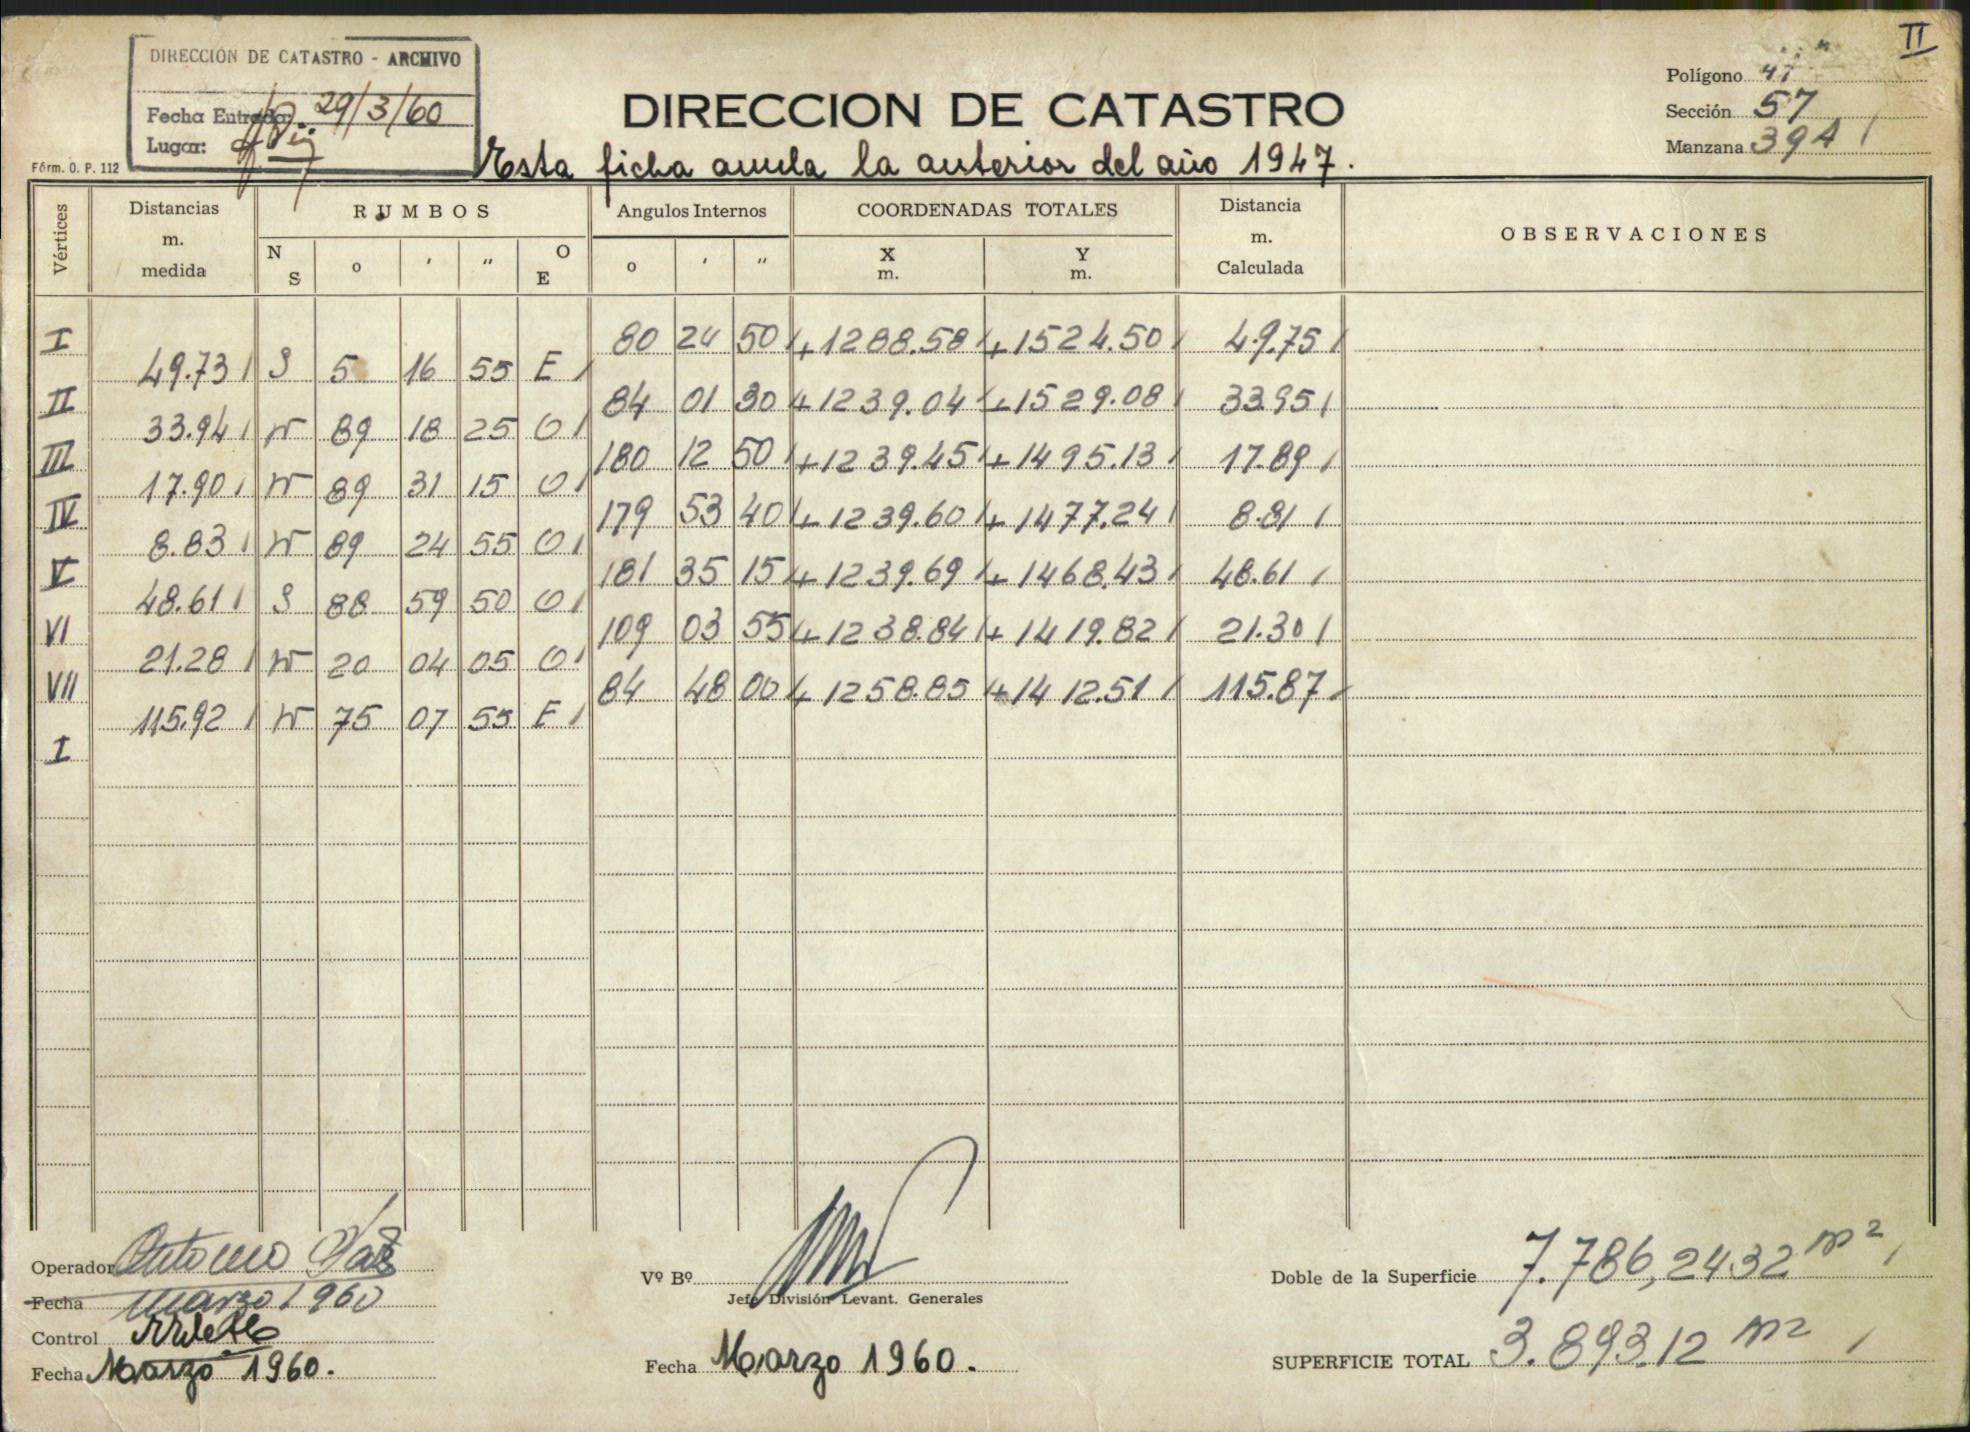 II
DIRECCIÓN DE CATASTRO - ARCHIVO
Fecha Entrada: 29/3/60
Lugar:
Fórm. O. P. 112
DIRECCION DE CATASTRO
Esta ficha anula la anterior del año 1947.
Polígono
Sección 57
Manzana 394
Vértices Distancias m. medida RUMBOS Angulos Internos COORDENADAS TOTALES Distancia m. Calculada OBSERVACIONES
N S o ' " O E o ' " X m. Y m.
I 80 24 50 +1288.58 +1524.50 49.75
49.73 S 5 16 55 E
II 84 01 30 +1239.04 +1529.08 33.95
33.94 N 89 18 25 O
III 180 12 50 +1239.45 +1495.13 17.89
17.90 N 89 31 15 O
IV 179 53 40 +1239.60 +1477.24 8.81
8.83 N 89 24 55 O
V 181 35 15 +1239.69 +1468.43 48.61
48.61 S 88 59 50 O
VI 109 03 55 +1238.84 +1419.82 21.30
21.28 N 20 04 05 O
VII 84 48 00 +1258.85 +1412.51 115.87
115.92 N 75 07 55 E
I
Operador Antonio
Fecha Marzo 1960
Control
Fecha Marzo 1960.
Vº Bº
Jefe División Levant. Generales
Fecha Marzo 1960.
Doble de la Superficie 7.786,2432 m²
SUPERFICIE TOTAL 3.893.12 m²